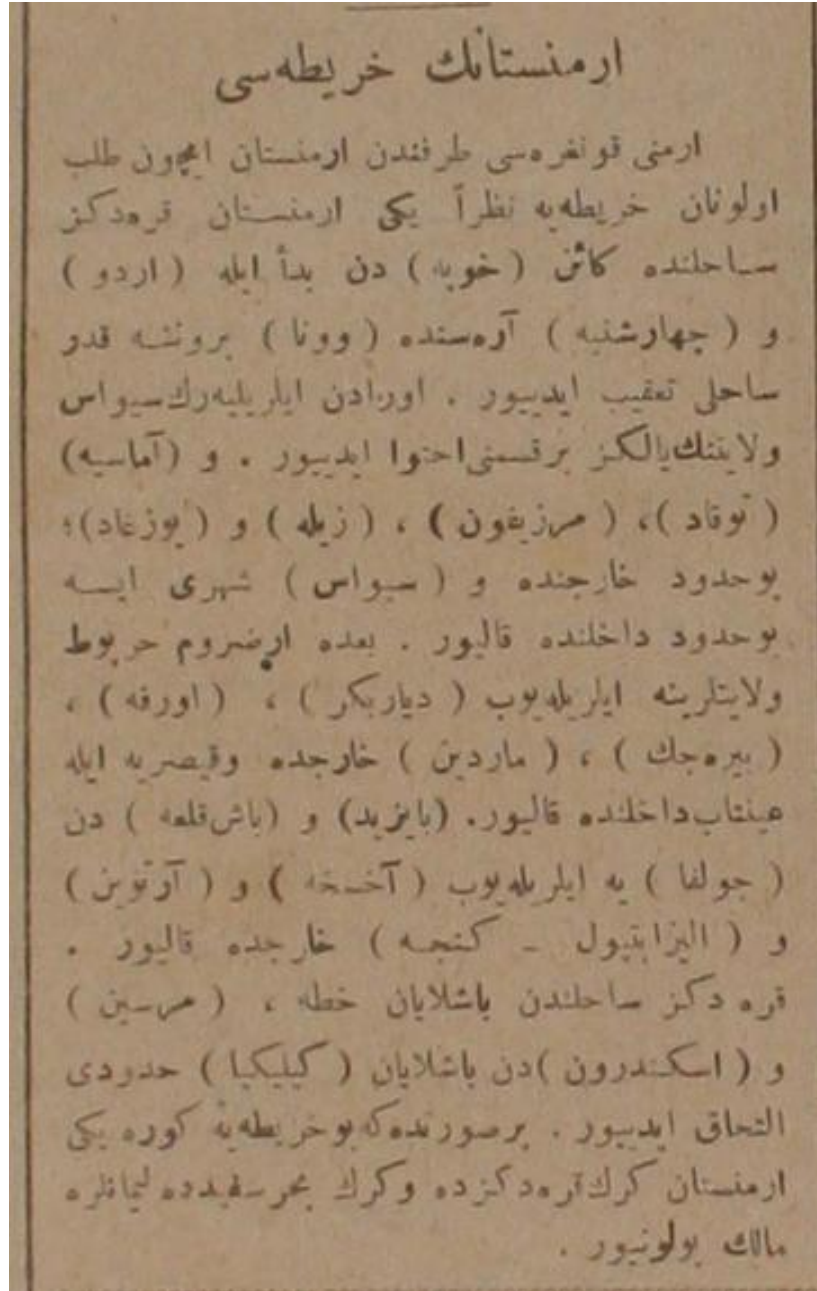 ارمنستانك خريطه‌سى
ارمنى قونغره‌سى طرفندن ارمنستان ايچون طلب
اولونان خريطه‌يه نظراً يكى ارمنستان قره‌دكز
ساحلنده كائن (خوپه) دن بدأ ايله (اردو)
و (چهارشنبه) آره‌سنده (وونا) بروننه قدر
ساحلى تعقيب ايدييور . اورادن ايلريليه‌رك سيواس
ولايتنك يالكز بر قسمنى احتوا ايدييور . و (آماسيه)
(توقاد)، (مرزيفون) ، (زيله) و (يوزغاد)؛
بوحدود خارجنده و (سيواس) شهرى ايسه
بوحدود داخلنده قاليور . بعده ارضروم خربوط
ولايتلرينه ايلريله‌يوب (دياربكر) ، (اورفه) ،
(بيره‌جك) ، (ماردين) خارجده وقيصريه ايله
عينتاب داخلنده قاليور. (بايزيد) و (باش‌قلعه) دن
(جولفا) يه ايلريله‌يوب (آخسخه) و (آرتوين)
و (اليزابتپول ـ كنجه) خارجده قاليور .
قره دكز ساحلندن باشلايان خطه ، (مرسين)
و (اسكندرون)دن باشلايان (كيليكيا) حدودى
التحاق ايدييور . برصورتده‌كه بوخريطه‌يه كوره يكى
ارمنستان كرك قره‌دكزده وكرك بحرسفيدده ليمانلره
مالك بولونيور .